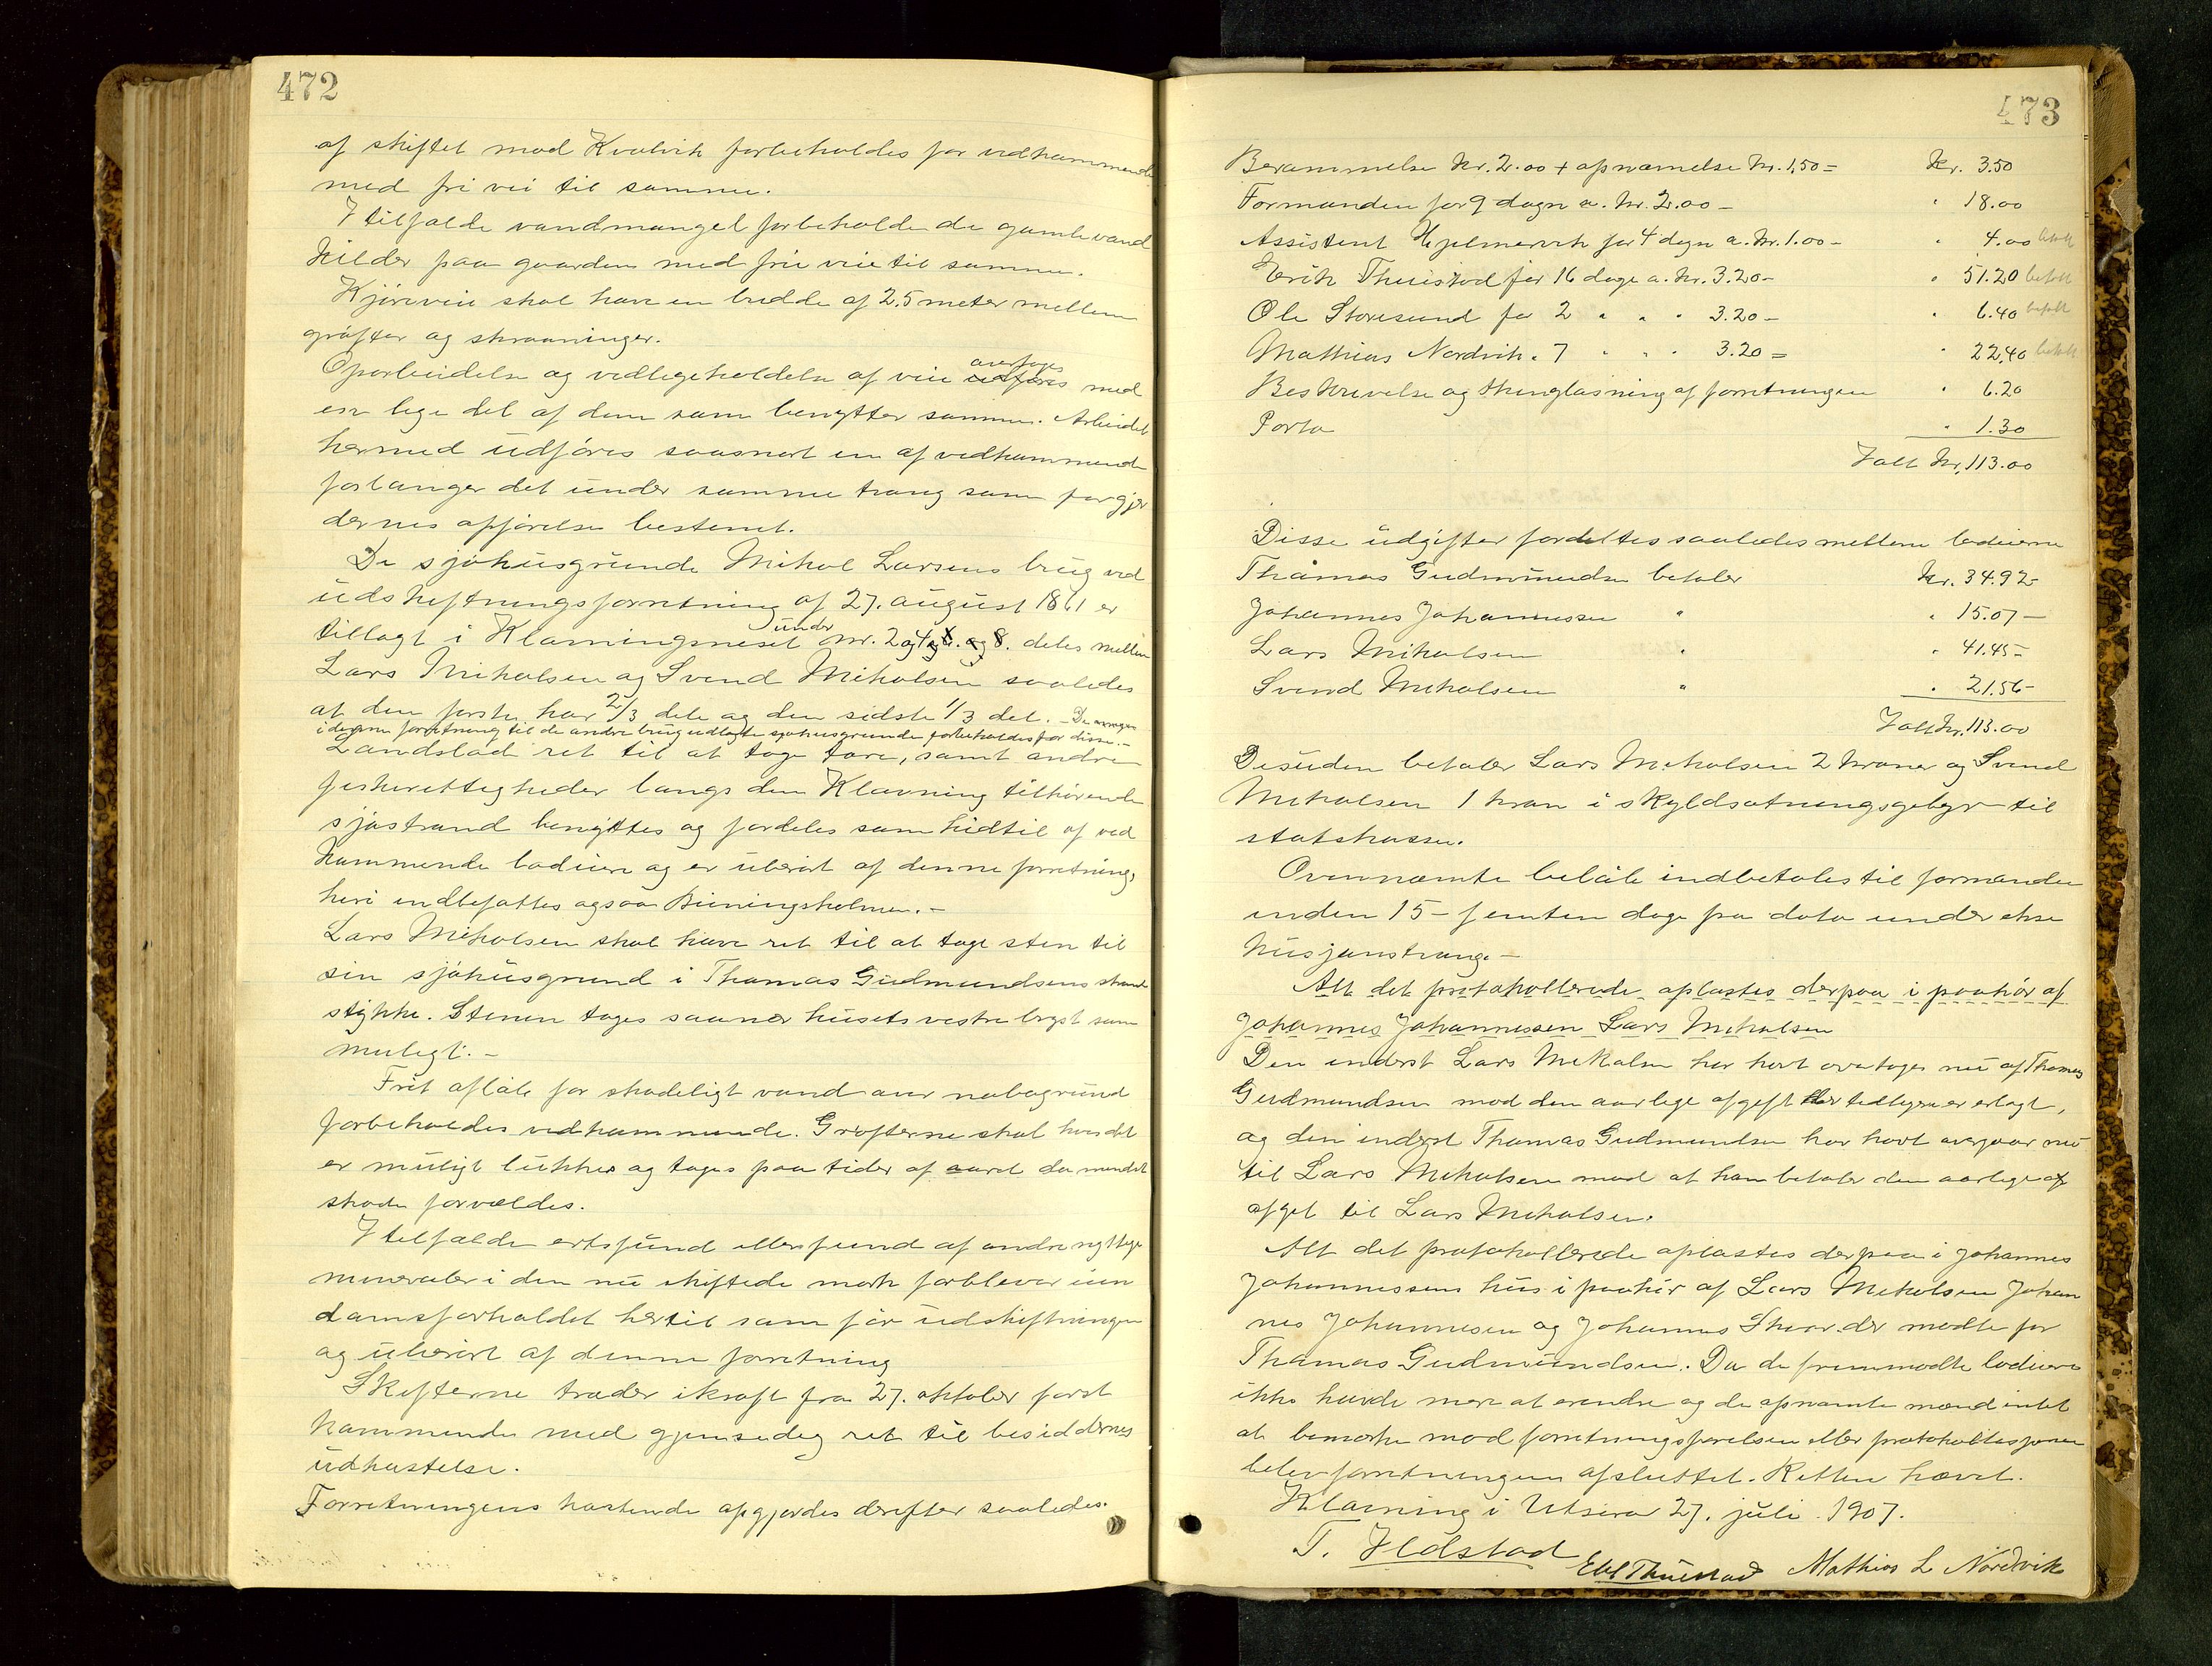 472
af skiftet mod Kvalvik forbeholdes for vedkommende
med fri vei til samme.
I tilfælde vandmangel forbeholdes de gamle vand
kilder paa gaarden med frie veie til samme.
Kjøreveie skal have en bredde af 2.5 meter mellem
grøfter og skraaninger.
Oparbeidelse og vedligeholdelse af veie udføres overtages med
en lige del af dem som benytter samme. Arbeidet
hermed udføres saasnart en af vedkommende
forlanger det under samme tvang som for gjer
dernes opførelse bestemt.
De sjøhusgrunde Mikal Larsens brug ved
udskiftningsforretning af 27. august 1861 er
tillagt i Klovningsneset under nr. 2 og 4 og 6. og 8. deles mellem
Lars Mikalsen og Svend Mikalsen saaledes
at den første har 2/3 dele og den sidste 1/3 del. - De
i denne forretning til de andre brug udlagte sjøhusgrunde forbeholdes for disse.-
Landslod ret til at tage tare, samt andre
fiskerettigheder langs den Klovning tilhørende
sjøstrand benyttes og fordeles som hidtil af ved
kommende lodeiere og er uberørt af denne forretning,
heri indbefattes ogsaa Beiningsholmen.-
Lars Mikalsen skal have ret til at tage sten til
sin sjøhusgrund i Thomas Gudmundsens strand
stykke. Stenen tages saa nær husets vestre bryst som
muligt.-
Frit afløb for skadeligt vand over nabogrund
forbeholdes vedkommende. Grøfterne skal hvis det
er muligt lukkes og tages paa tider af aaret da mindst
skade forvoldes.
I tilfælde ertsfund eller fund af andre nyttige
mineraler i den nu skiftede mark forbliver eien
domsforholdet hertil som før udskiftningen
og uberørt af denne forretning
Skifterne træder i kraft fra 27. oktober først
kommende med gjensidig ret til besiddernes
udkastelse.
Forretningens kostende opgjordes derefter saaledes.
473
Berammelse kr. 2.00 + opnævnelse kr. 1,50 = Kr. 3.50
Formanden for 9 dage a. kr. 2.00 - " 18.00
Assistent Hjelmervik for 4 dage a. kr. 1.00 - " 4.00 betalt
Erik Thuestad for 16 dage a. kr. 3.20 - " 51.20 betalt
Ole Storesund for 2 " " " 3.20 - " 6.40 betalt
Mathias Nordvik " 7 " " " 3.20 = " 22,40 betalt
Beskrivelse og thinglæsning af forretningen " 6.20
Porto " 1.30
Ialt kr. 113.00
Disse udgifter fordeltes saaledes mellem lodeierne
Thomas Gudmundsen betaler Kr. 34.92-
Johannes Johannessen " " 15.07 -
Lars Mikalsen " " 41.45 -
Svend Mikalsen " " 21.56 -
Ialt kr. 113.00
Desuden betaler Lars Mikalsen 2 kroner og Svend
Mikalsen 1 kron i skyldsætningsgebyr til
statskassen.
Ovennævnte beløb indbetales til formanden
inden 15 - femten dage fra dato under ekse
kusjonstvang.-
Alt det protokollerede oplæstes derpaa i paahør af
Johannes Johannessen Lars Mikalsen
Den inderst Lars Mikalsen har havt overtages nu af Thomas
Gudmundsen mod den aarlige afgift der tidligere er erlagt,
og den inderst Thomas Gudmundsen har havt overgaar nu
til Lars Mikalsen mod at han betaler den aarlige af
afget til Lars Mikalsen.
Alt det protokollerede oplæstes derpaa i Johannes
Johannessens hus i paahør af Lars Mikalsen Johan
nes Johannesen og Johannes Skaar der mødte for
Thomas Gudmundsen. Da de fremmødte lodeiere
ikke havde mere at erindre og de opnævnte mænd intet
at bemærke mod forretningsførelsen eller protokollasjonen
blev forretningen afsluttet. Retten hævet.
Klovning i Utsira 27. juli 1907.
T. Ildstad
E. Thuestad Mathias L Nordvik